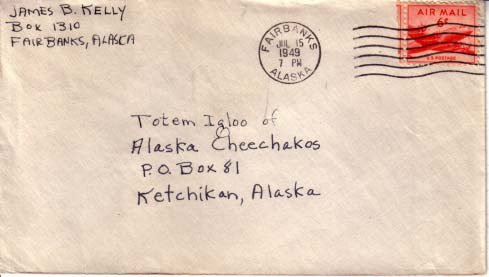 JAMES B. KELLY
BOX 1310
FAIRBANKS, ALASCA
FAIRBANKS
JUL 15
1949
7 PM
ALASKA
AIR MAIL
6¢
U.S. POSTAGE
Totem Igloo of
Alaska Cheechakos
P.O. Box 81
Ketchikan, Alaska